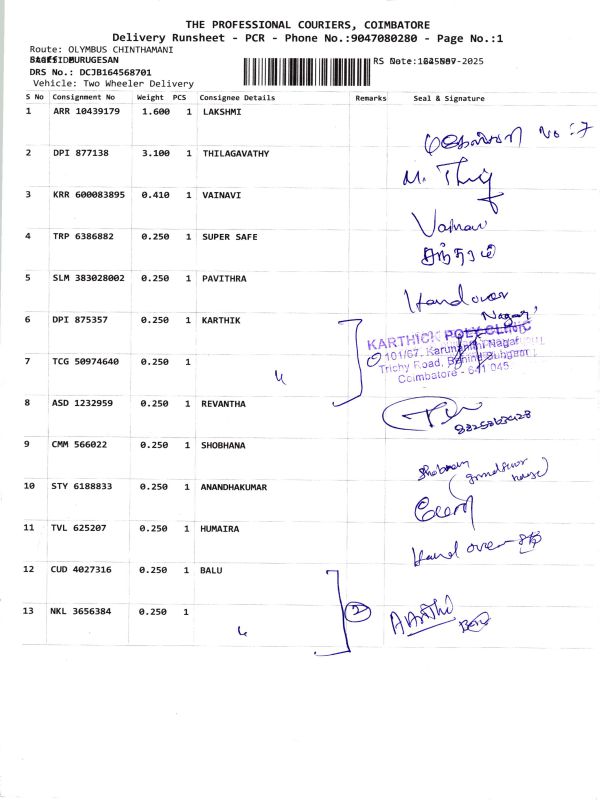 THE PROFESSIONAL COURIERS, COIMBATORE
Delivery Runsheet - PCR - Phone No.:9047080280 - Page No.:1
Route: OLYMBUS CHINTHAMANI
MURUGESAN
DRS No.: DCJB164568701
Vehicle: Two Wheeler Delivery
S No Consignment No Weight PCS Consignee Details Remarks Seal & Signature
1 ARR 10439179 1.600 1 LAKSHMI
No : 7
2 DPI 877138 3.100 1 THILAGAVATHY
3 KRR 600083895 0.410 1 VAINAVI
4 TRP 6386882 0.250 1 SUPER SAFE
5 SLM 383028002 0.250 1 PAVITHRA
Hand over
Nagar
6 DPI 875357 0.250 1 KARTHIK
KARTHICK POLY CLINIC
101/67, Karumanthi Nagar
7 TCG 50974640 0.250 1
Trichy Road, Behind
Coimbatore - 641 045.
8 ASD 1232959 0.250 1 REVANTHA
9 CMM 566022 0.250 1 SHOBHANA
10 STY 6188833 0.250 1 ANANDHAKUMAR
11 TVL 625207 0.250 1 HUMAIRA
Hand over
12 CUD 4027316 0.250 1 BALU
13 NKL 3656384 0.250 1
2